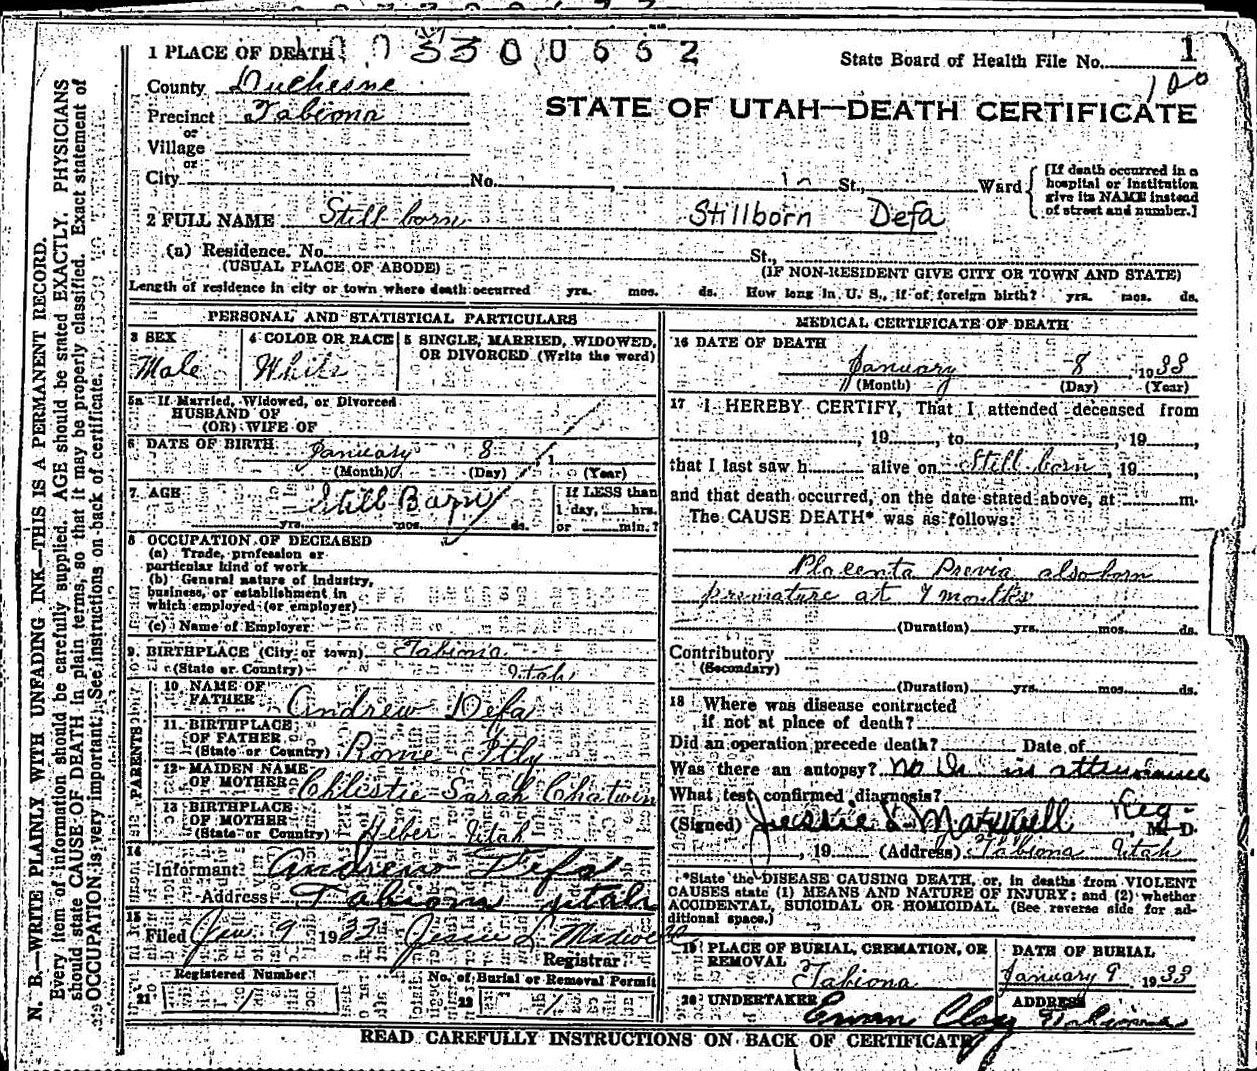 1 PLACE OF DEATH
State Board of Health File No. 1
County Duchesne
STATE OF UTAH—DEATH CERTIFICATE
Precinct Tabiona
or
Village
or
City No. , in St., Ward
[If death occurred in a
hospital or institution
give its NAME instead
of street and number.]
2 FULL NAME Still born Stillborn Defa
(a) Residence. No. St.,
(USUAL PLACE OF ABODE) (IF NON-RESIDENT GIVE CITY OR TOWN AND STATE)
Length of residence in city or town where death occurred yrs. mos. ds. How long in U. S., if of foreign birth? yrs. mos. ds.
PERSONAL AND STATISTICAL PARTICULARS
3 SEX
Male
4 COLOR OR RACE
White
5 SINGLE, MARRIED, WIDOWED,
OR DIVORCED (Write the word)
5a If Married, Widowed, or Divorced
HUSBAND OF
(OR) WIFE OF
6 DATE OF BIRTH January 8 1
(Month) (Day) (Year)
7 AGE Still Born
yrs. mos. ds.
If LESS than
1 day, hrs.
or min.?
8 OCCUPATION OF DECEASED
(a) Trade, profession or
particular kind of work
(b) General nature of industry,
business, or establishment in
which employed (or employer)
(c) Name of Employer
9 BIRTHPLACE (City or town) Tabiona
(State or Country) Utah
PARENTS
10 NAME OF
FATHER Andrew Defa
11 BIRTHPLACE
OF FATHER
(State or Country) Rome Itly
12 MAIDEN NAME
OF MOTHER Chlistie Sarah Chatwin
13 BIRTHPLACE
OF MOTHER
(State or Country) Heber Utah
14
Informant Andrew Defa
Address Tabiona Utah
15
Filed Jan 9 1933 Jessie L Maxwell
Registrar
Registered Number No. of Burial or Removal Permit
21 1 22 1
MEDICAL CERTIFICATE OF DEATH
16 DATE OF DEATH
January 8, 1933
(Month) (Day) (Year)
17 I HEREBY CERTIFY, That I attended deceased from
, 19 , to , 19 ,
that I last saw h alive on Still born, 19 ,
and that death occurred, on the date stated above, at m.
The CAUSE DEATH* was as follows:
Placenta Previa also born
premature at 7 months
(Duration) yrs. mos. ds.
Contributory
(Secondary)
(Duration) yrs. mos. ds.
18 Where was disease contracted
if not at place of death?
Did an operation precede death? Date of
Was there an autopsy? No Dr in attendance
What test confirmed diagnosis?
(Signed) Jessie L Maxwell Reg. , M. D.
, 19 (Address) Tabiona Utah
*State the DISEASE CAUSING DEATH, or, in deaths from VIOLENT
CAUSES state (1) MEANS AND NATURE OF INJURY; and (2) whether
ACCIDENTAL, SUICIDAL OR HOMICIDAL. (See reverse side for ad-
ditional space.)
19 PLACE OF BURIAL, CREMATION, OR
REMOVAL
Tabiona
DATE OF BURIAL
January 9 1933
20 UNDERTAKER
ADDRESS
Tabiona
READ CAREFULLY INSTRUCTIONS ON BACK OF CERTIFICATE
N. B.—WRITE PLAINLY WITH UNFADING INK—THIS IS A PERMANENT RECORD.
Every item of information should be carefully supplied. AGE should be stated EXACTLY. PHYSICIANS
should state CAUSE OF DEATH in plain terms, so that it may be properly classified. Exact statement of
OCCUPATION is very important. See instructions on back of certificate.